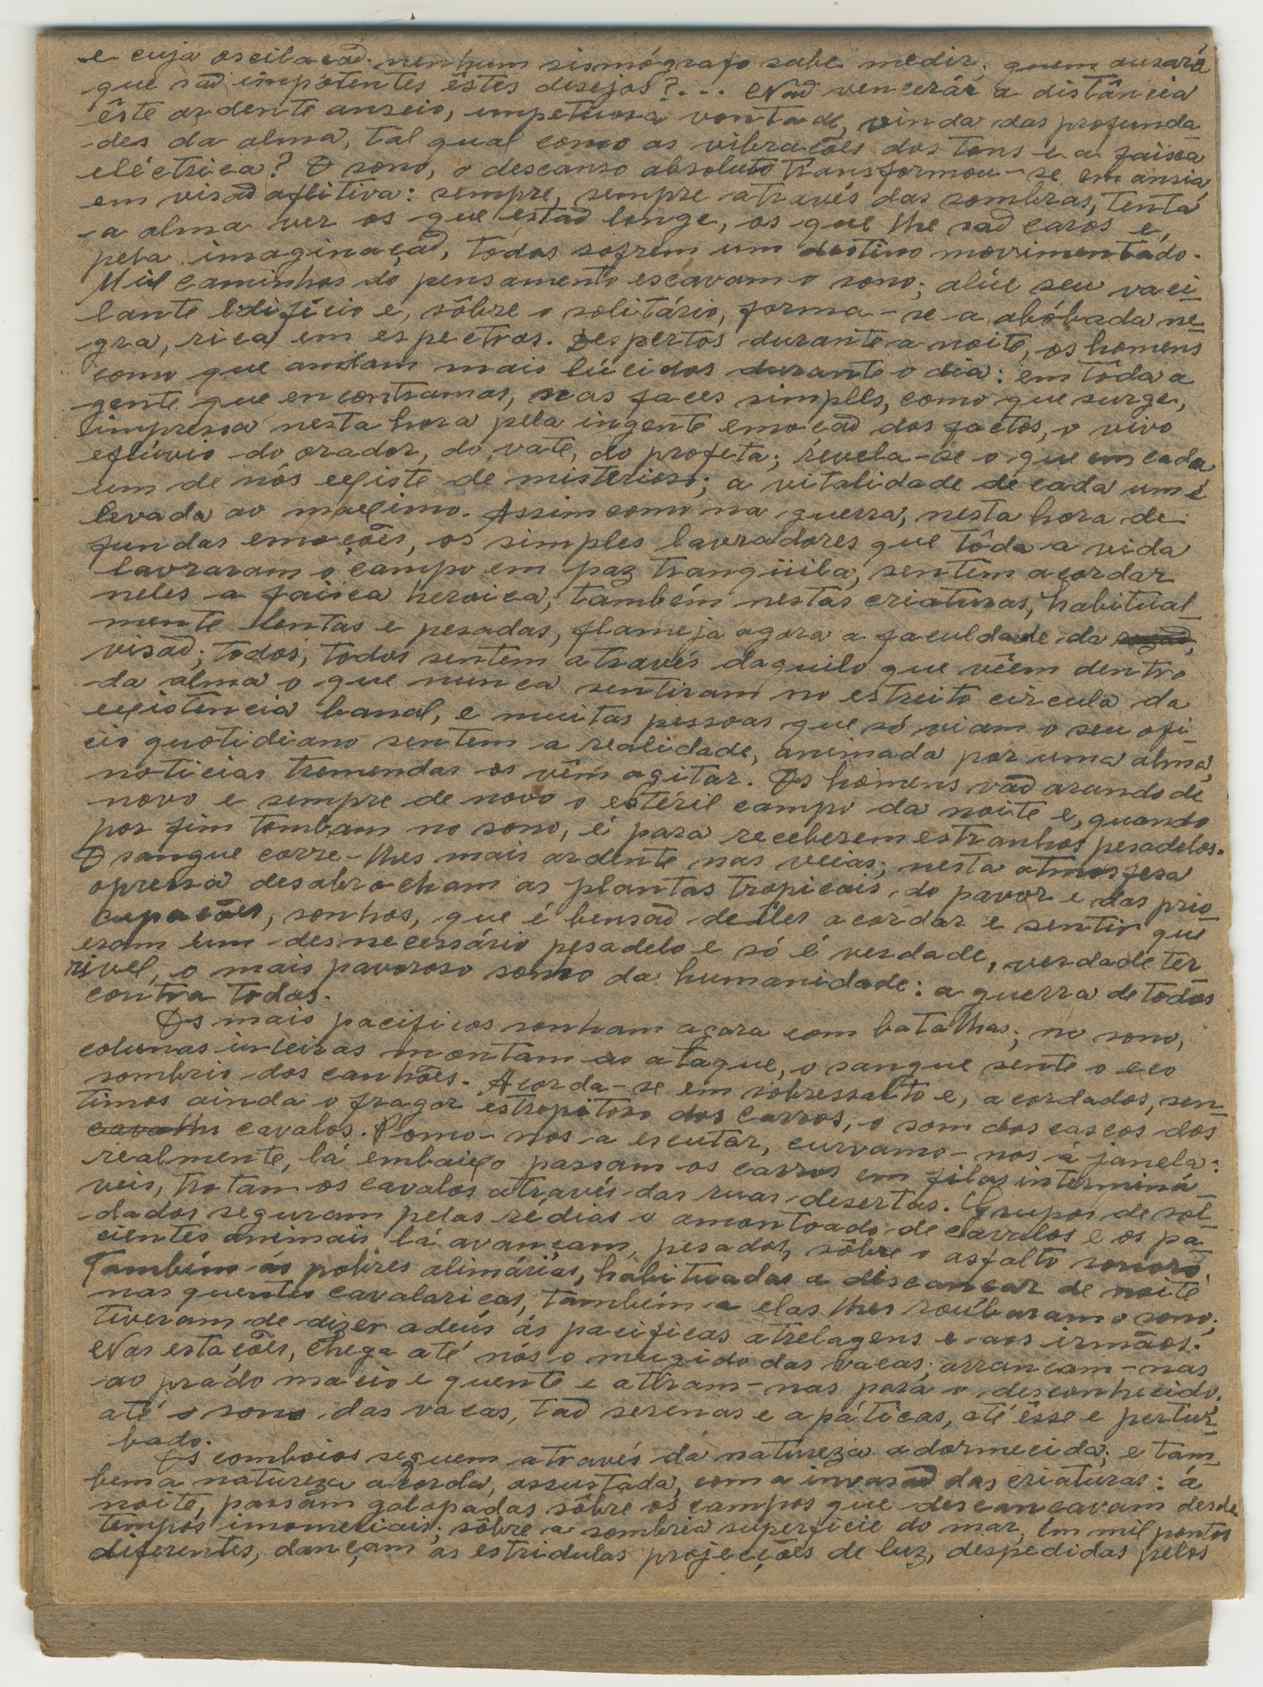 e cuja oscilação nenhum sismógrafo sabe medir; quem ousará
que são impotentes êstes desejos?... Não vencerár a distância
êste ardente anseio, impetuosa vontade, vinda das profunda
des da alma, tal qual como as vibrações dos tons e a faisca
eléctrica? O sono, o descanso absoluto transformou-se em ansia,
em visão aflitiva: sempre, sempre através das sombras, tenta
a alma ver os que estão longe, os que lhe são caros e,
pela imaginação, todos sofrem um destino movimentado.
Mil caminhos do pensamento escavam o sono; alúe seu vaci-
lante edifício e, sôbre o solitário, forma-se a abóbada ne-
gra, rica em espectros. Despertos durante a noite, os homens
como que andam mais lúcidos durante o dia: em tôda a
gente que encontramos, nas faces simples, como que surge,
impressa nesta hora pela ingente emoção dos factos, o vivo
eflúvio do orador, do vate, do profeta; revela-se o que em cada
um de nós existe de misterioso; a vitalidade de cada um é
levada ao maximo. Assim como na guerra, nesta hora de
fundas emoções, os simples lavradores que tôda a vida
lavraram o campo em paz tranqüila, sentem acordar
neles a faisca heroica; também nestas criaturas, habitual-
mente lentas e pesadas, flameja agora a faculdade da
visão; todos, todos sentem através daquilo que vêem dentro
da alma o que nunca sentiram no estreito circula da
existência banal, e muitas pessoas que só viam o seu ofi-
cio quotidiano sentem a realidade, animada por uma alma,
noticias tremendas os vêm agitar. Os homens vão arando de
novo e sempre de novo o estéril campo da noite e, quando
por fim tombam no sono, é para receberem estranhos pesadelos.
O sangue corre-lhes mais ardente nas veias; nesta atmosfera
opressa desabrocham as plantas tropicais do pavor e das prio
cupações, sonhos, que é bensão deles acordar e sentir que
eram um desnecessário pesadelo e só é verdade, verdade ter-
rivel, o mais pavoroso sonho da humanidade: a guerra de todos
contra todos.
Os mais pacificos sonham agora com batalhas; no sono,
colunas inteiras montam ao ataque, o sangue sente o eco
sombrio dos canhões. Acorda-se em sobressalto e, acordados, sen-
timos ainda o fragor estrepitoso dos carros, o som dos cascos dos
cavalos. Pomo-nos a escutar, curvamo-nos á janela:
realmente, lá embaixo passam os carros em filas interminá
veis, trotam os cavalos através das ruas desertas. Grupos de sol-
dados seguram pelas redias o amontoado de cavalos e os pa-
cientes animais lá avançam, pesados, sôbre o asfalto sonoro.
Também ás pobres alimárias, habituadas a descansar de noite
nas quentes cavalariças, também a elas lhes roubaram o sono;
tiveram de dizer adeus ás pacificas atrelagens e aos irmãos.
Nas estações, chega até nós o mugido das vacas; arrancam-nas
ao prado macio e quente e atiram-nas para o desconhecido,
até o sono das vacas, tão serenas e apáticas, até êsse e pertur-
bado.
Os comboios seguem através da natureza adormecida; e tam-
bem a natureza acorda, assustada, com a invasão das criaturas: á
noite, passam galopadas sôbre os campos que descansavam desde
tempos imomeriais; sôbre a sombria superficie do mar, em mil pontos
diferentes, dançam as estridulas projecções de luz, despedidas pelos